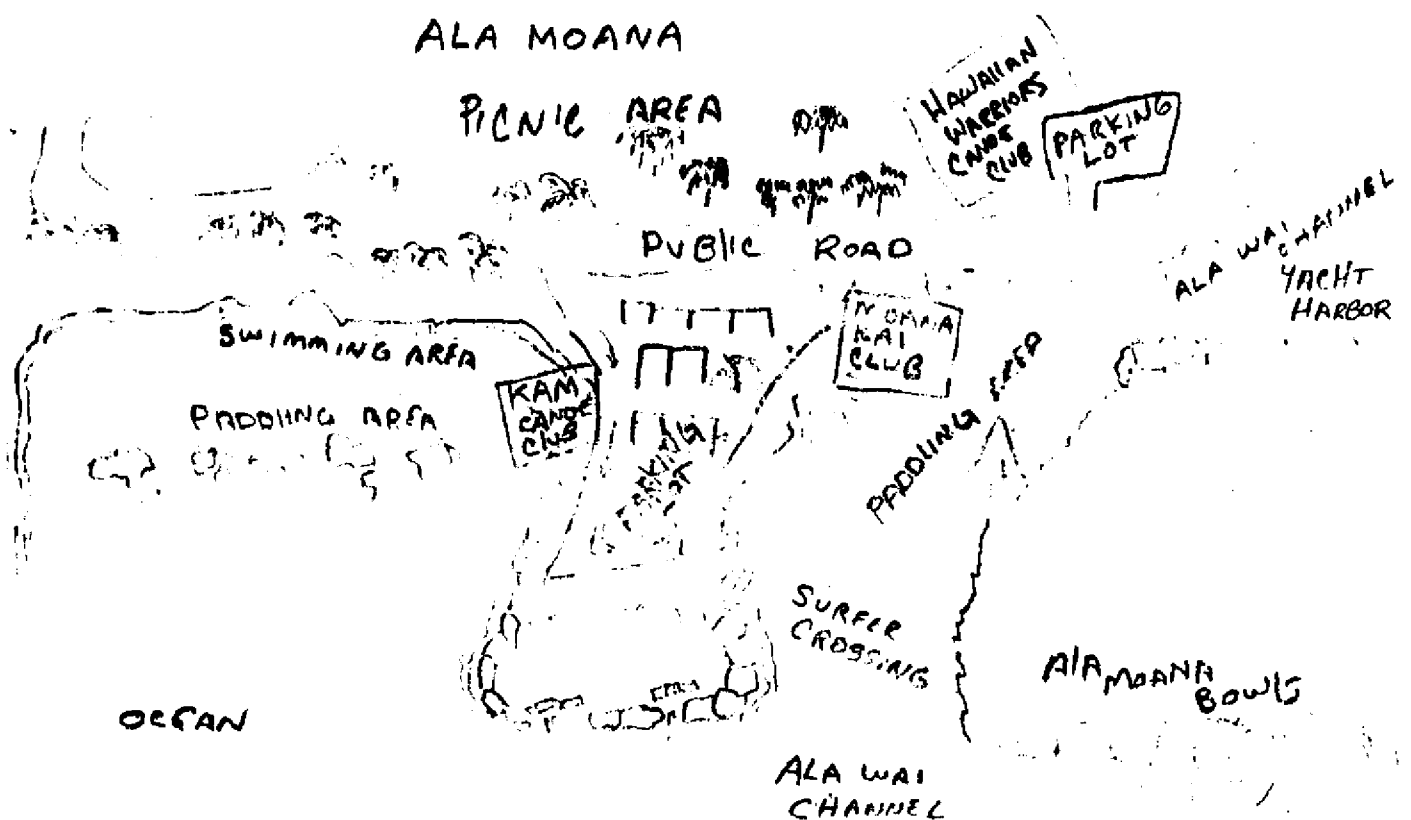 ALA MOANA
PICNIC AREA
HAWAIIAN
WARRIORS
CANOE
CLUB
PARKING
LOT
PUBLIC ROAD
ALA WAI CHANNEL
YACHT
HARBOR
SWIMMING AREA
KAI
CLUB
PADDLING AREA
KAM
CANOE
CLUB
PADDLING AREA
SURFER
CROSSING
ALA MOANA
BOWLS
OCEAN
ALA WAI
CHANNEL